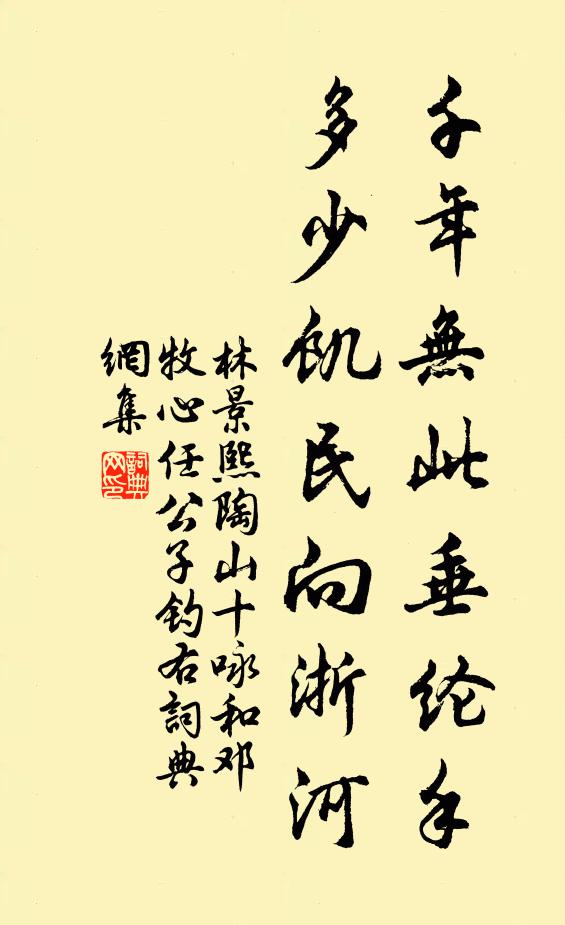 千年無此垂纶手
多少飢民向浙河
林景熙陶山十咏和邓
牧心任公子钓右詞典
網集
詞典網印